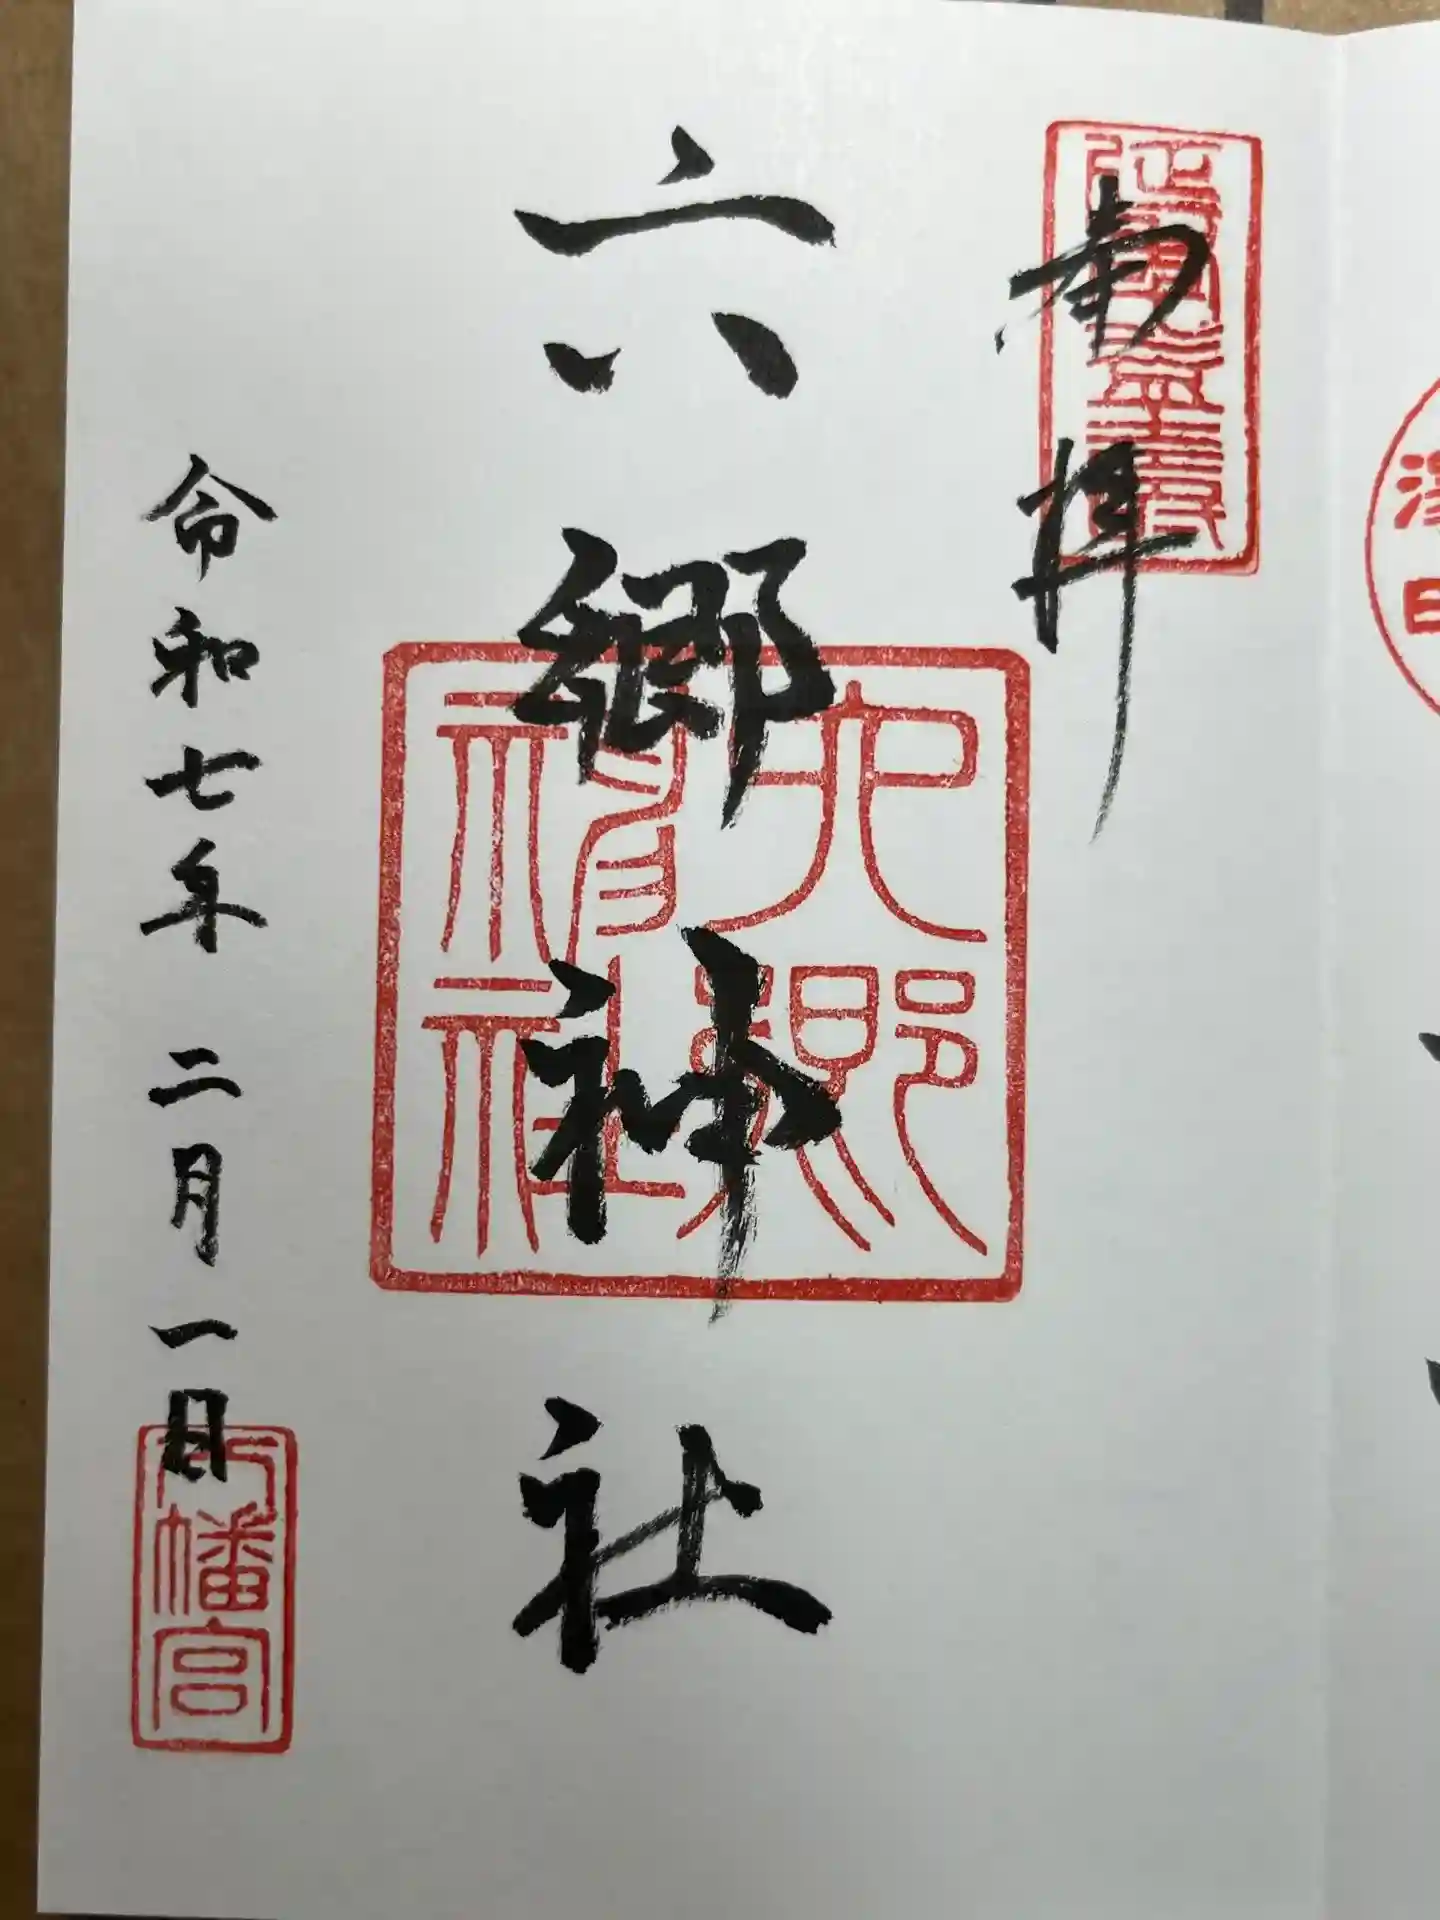 奉拝
六郷神社
六郷神社
令和七年二月一日
八幡宮